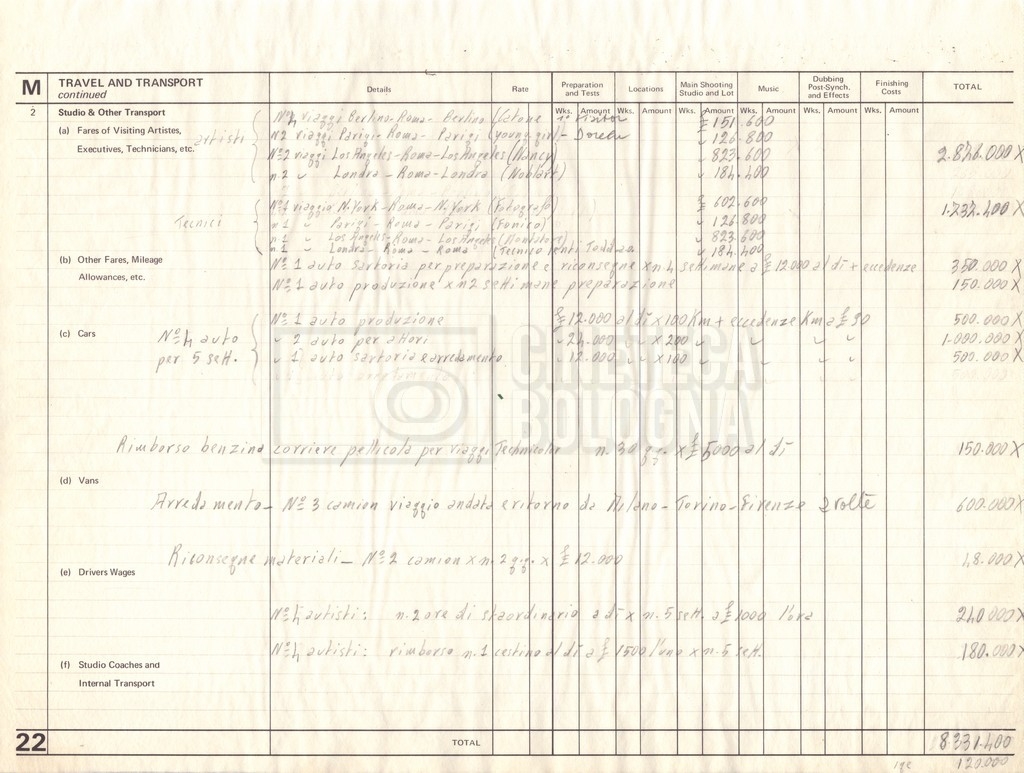 M TRAVEL AND TRANSPORT
continued
Details Rate Preparation and Tests Locations Main Shooting Studio and Lot Music Dubbing Post-Synch. and Effects Finishing Costs TOTAL
2 Studio & Other Transport Wks. Amount Wks. Amount Wks. Amount Wks. Amount Wks. Amount Wks. Amount
(a) Fares of Visiting Artistes,
Executives, Technicians, etc.
artisti
Nº 4 viaggi Berlino-Roma-Berlino £ 151.600
Nº 2 viaggi Parigi-Roma-Parigi (young girl - " 126.800
Nº 2 viaggi Los Angeles-Roma-Los Angeles (Nancy) " 823.600 2.846.000 X
n 2 " Londra-Roma-Londra " 184.400
Tecnici
Nº 1 viaggio N.York-Roma-N.York (Fotografo) £ 602.600 1.737.400 X
n 1 " Parigi-Roma-Parigi (Fonico) " 126.800
n 1 " Los Angeles-Roma-Los Angeles " 823.600
n. " Londra-Roma-Roma (Tecnico " 184.400
(b) Other Fares, Mileage
Allowances, etc.
Nº 1 auto sartoria per preparazione e riconsegne x n.4 settimane a £ 12.000 al dì + eccedenze 350.000 X
Nº 1 auto produzione x n 2 settimane preparazione 150.000 X
(c) Cars
Nº 4 auto
per 5 sett.
Nº 1 auto produzione £ 12.000 al dì x 100 Km + eccedenze Km a £ 30 500.000 X
" 2 auto per attori " 24.000 " x 200 " " " " 1.000.000 X
" 1 auto sartoria e arredamento 12.000 " x 100 " " " " 500.000 X
Rimborso benzina corriere pellicola per viaggi n. 30 gg. x £ 5000 al dì 150.000 X
(d) Vans
Arredamento - Nº 3 camion viaggio andata e ritorno da Milano - Torino - Firenze 2 volte 600.000 X
Riconsegne materiali - Nº 2 camion x n. 2 gg. x £ 12.000 48.000 X
(e) Drivers Wages
Nº 4 autisti: n. 2 ore di straordinario a dì x n. 5 sett. a £ 1000 l'ora 240.000 X
Nº 4 autisti: rimborso n. 1 cestino al dì a £ 1500 l'uno x n. 5 sett. 180.000 X
(f) Studio Coaches and
Internal Transport
22 TOTAL 8.331.400
120.000
CINETECA
BOLOGNA